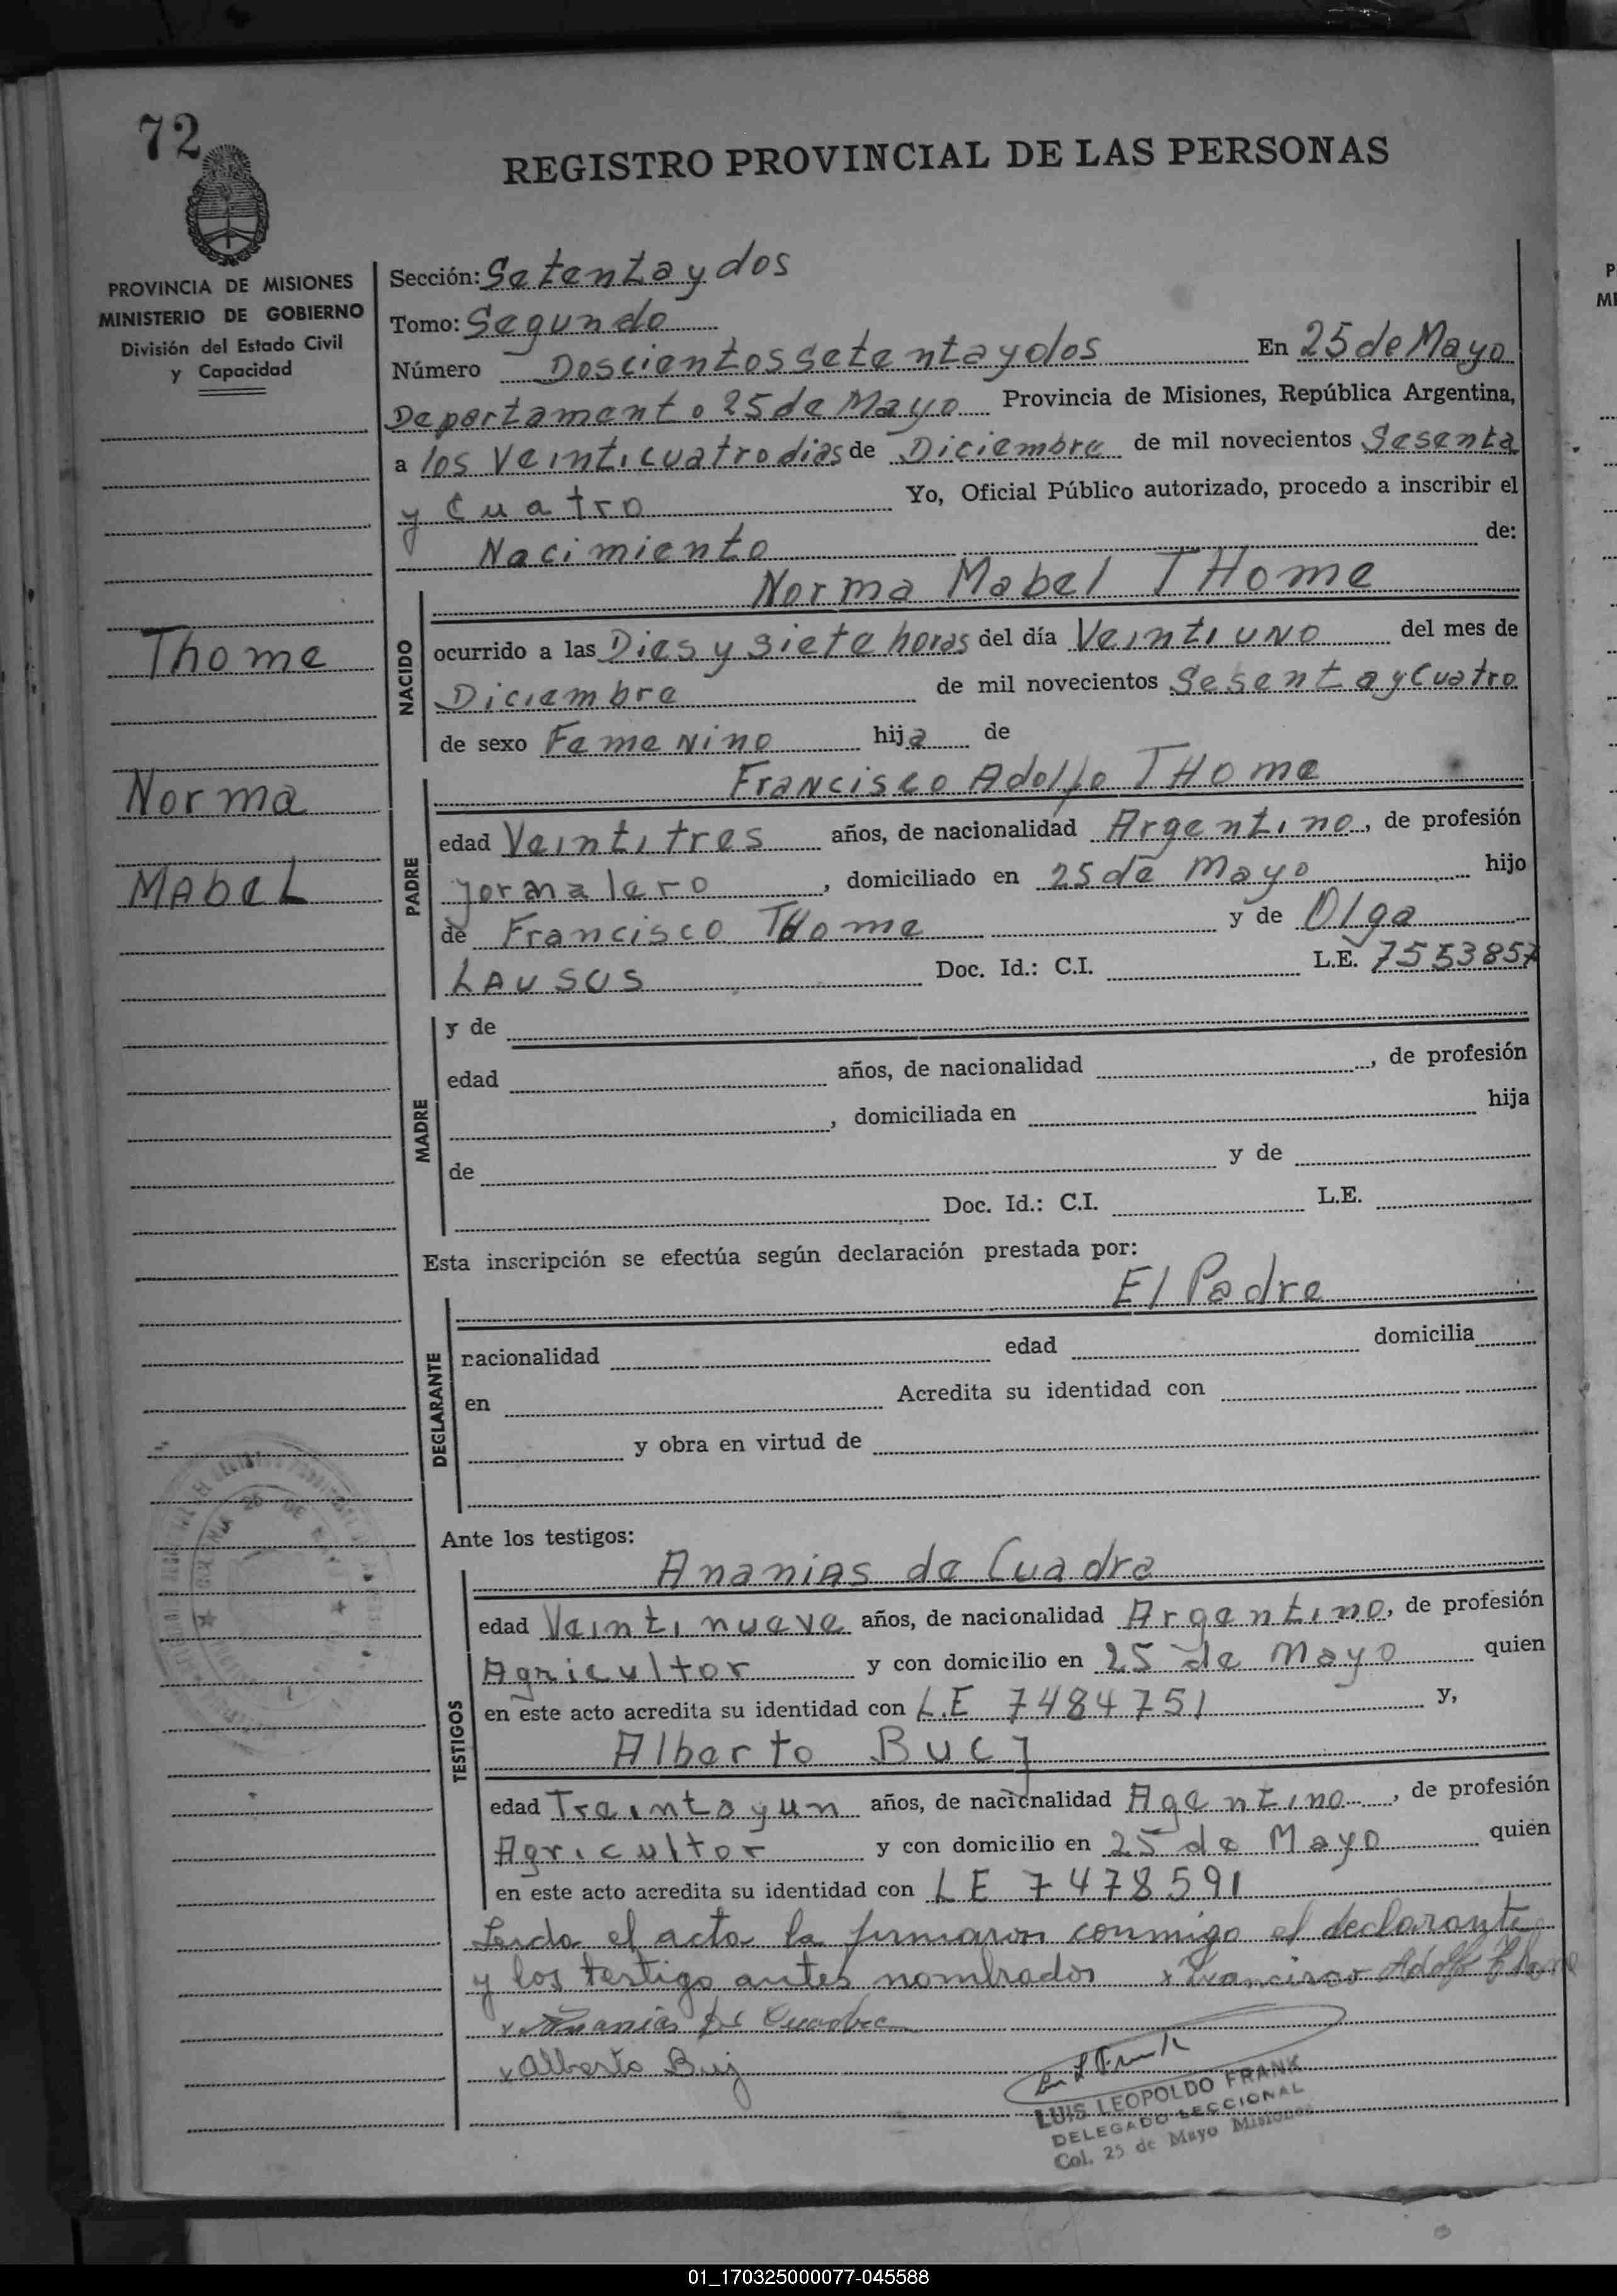 72
REGISTRO PROVINCIAL DE LAS PERSONAS
PROVINCIA DE MISIONES
MINISTERIO DE GOBIERNO
División del Estado Civil
y Capacidad
Sección: Setenta y dos
Tomo: Segundo
Número Doscientos setenta y dos En 25 de Mayo
Departamento 25 de Mayo Provincia de Misiones, República Argentina,
a los Veinticuatro dias de Diciembre de mil novecientos Sesenta
y Cuatro Yo, Oficial Público autorizado, procedo a inscribir el
Nacimiento de:
Norma Mabel THome
Thome
Norma
MAbeL
NACIDO
ocurrido a las Dies y siete horas del día Veinti uno del mes de
Diciembre de mil novecientos Sesenta y Cuatro
de sexo Femenino hija de
Francisco Adolfo THome
PADRE
edad Veintitres años, de nacionalidad Argentino, de profesión
jornalero, domiciliado en 25 de Mayo hijo
de Francisco THome y de Olga
LAUSUS Doc. Id.: C.I. L.E. 7553857
MADRE
y de
edad años, de nacionalidad , de profesión
, domiciliada en hija
de y de
Doc. Id.: C.I. L.E.
Esta inscripción se efectúa según declaración prestada por:
El Padre
DECLARANTE
nacionalidad edad domicilia
en Acredita su identidad con
y obra en virtud de
Ante los testigos:
Ananias de Cuadra
TESTIGOS
edad Veinti nueve años, de nacionalidad Argentino, de profesión
Agricultor y con domicilio en 25 de Mayo quien
en este acto acredita su identidad con L.E 7484751 y,
Alberto Bucj
edad Treinta y un años, de nacionalidad Agentino, de profesión
Agricultor y con domicilio en 25 de Mayo quien
en este acto acredita su identidad con LE 7478591
Leida el acta la firmaron conmigo el declarante
y los testigo antes nombrados x Francisco Adolfo Thome
x Ananias de Cuadra
x Alberto Buj
LUIS LEOPOLDO FRANK
DELEGADO SECCIONAL
Col. 25 de Mayo Misiones
01_170325000077-045588